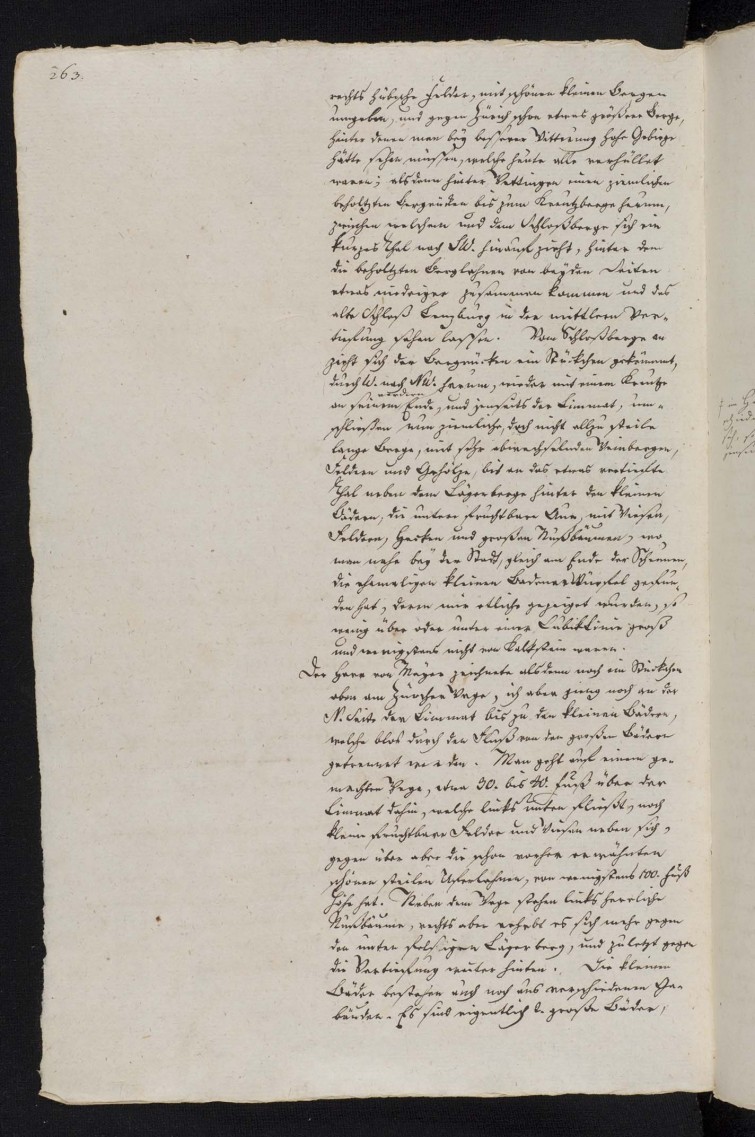 263.
rechts hübsche Felder, mit schönen kleinen Bergen
umgeben, und gegen Zürich schon etwas größere Berge,
hinter denen man bey besserer Witterung hohe Gebirge
hätte sehen müssen, welche heute alle verhüllet
waren; alsdenn hinter Wettingen einen ziemlichen
beholtzten Bergrücken bis zum Kreutzberge herum,
zwischen welchem und dem Schloßberge sich ein
kurzes Thal nach SW. hinauf zieht, hinter dem
die beholtzten Berglehnen von beyden Seiten
etwas niedriger zusammen kommen und das
alte Schloß Lenzburg in der mittlern Ver-
tiefung sehen lassen. Vom Schloßberge an
zieht sich der Bergrücken ein Stückchen gekrümmt,
durch W. nach NW. herum, wieder mit einem Kreutze
an seinem andern Ende, und jenseits der Limmat, um-
schließen nun ziemliche, doch nicht allzu steile
lange Berge, mit sehr abwechselnden Weinbergen,
Feldern und Gehölze, bis an das etwas vertiefte
Thal neben dem Lägerberge hinter den kleinen
Bädern, die untere fruchtbare Aue, mit Wiesen,
Feldern, Hecken und großen Nußbäumen, wo
man nahe bey der Stadt, gleich am Ende der Scheunen,
die ehemaligen kleinen Badener Würfel gefun-
den hat, deren mir etliche gezeiget wurden, so
wenig über oder unter einer Cubiklinie groß
und wenigstens nicht von Kalkstein waren.
Der Herr von Meyer zeichnete alsdenn noch ein Stückchen
oben am Zürcher Wege, ich aber gieng noch an der
N. Seite der Limmat bis zu den kleinen Bädern,
welche blos durch den Fluß von den großen Bädern
getrennet werden. Man geht auf einem ge-
machten Wege, etwa 30. bis 40. Fuß über der
Limmat dahin, welche links unten fließt, noch
kleine fruchtbare Felder und Wiesen neben sich,
gegen über aber die schon vorher erwähnten
schönen steilen Uferlehnen, von wenigstens 100. Fuß
Höhe hat. Neben dem Wege stehen links herrliche
Nußbäume, rechts aber erhebt es sich mehr gegen
den unten felsigen Lägerberg, und zuletzt gegen
die Vertiefung weiter hinten. Die kleinen
Bäder bestehen auch noch aus verschiedenen Ge-
bäuden. Es sind eigentlich 2. große Bäder,